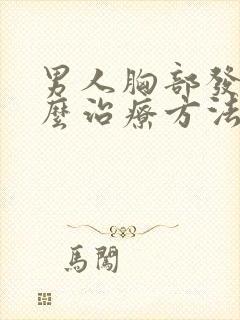 男人胸部發
麼治療方法
馬闖